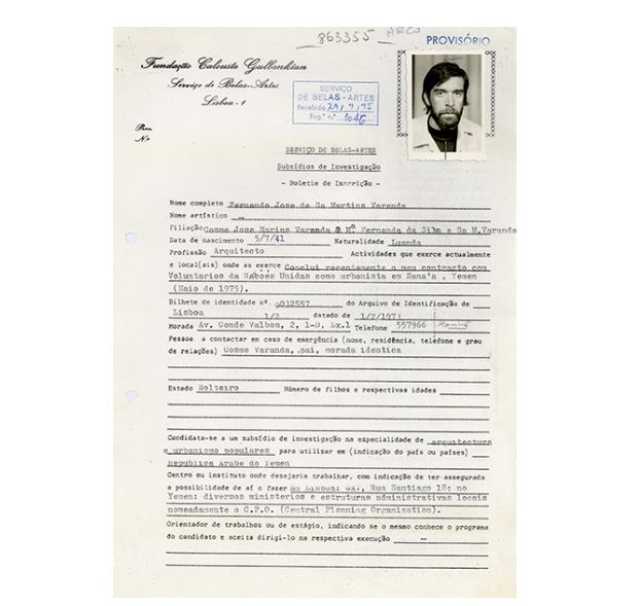 863355 ARCO
PROVISÓRIO
Fundação Calouste Gulbenkian
Serviço de Belas-Artes
Lisboa - 1
SERVIÇO
DE BELAS-ARTES
Recebido 29/9/75
Reg.º n.º 1046
Ref.
N.º
SERVIÇO DE BELAS-ARTES
Subsídios de Investigação
- Boletim de Inscrição -
Nome completo Fernando Jose de Sa Martins Varanda
Nome artístico -
Filiação Cosme Jose Marins Varanda & Mª Fernanda da Silva e Sa M.Varanda
Data de nascimento 5/7/41 Naturalidade Luanda
Profissão Arquitecto Actividades que exerce actualmente
e local(ais) onde as exerce Conclui recentemente o meu contracto com
Voluntarios da Nações Unidas como urbanista em Sana'a . Yemen
(Maio de 1975).
Bilhete de identidade nº. do Arquivo de Identificação de
Lisboa datado de
Morada Av. Conde Valbom, 2, 1-D, Lx.1 Telefone 557966
Pessoa a contactar em caso de emergência (nome, residência, telefone e grau
de relações) Cosme Varanda, pai, morada identica
Estado Solteiro Número de filhos e respectivas idades
Candidata-se a um subsídio de investigação na especialidade de arquitectura
e urbanismo populares para utilizar em (indicação do país ou países)
Republica Arabe do Yemen
Centro ou instituto onde desejaria trabalhar, com indicação de ter assegurado
a possibilidade de aí o fazer Rua Santiago 18; no
Yemen: diversos ministerios e estruturas administrativas locais
nomeadamente o C.P.O. (Central Planning Organisation).
Orientador de trabalhos ou de estágio, indicando se o mesmo conhece o programa
do candidato e aceita dirigi-lo na respectiva execução -